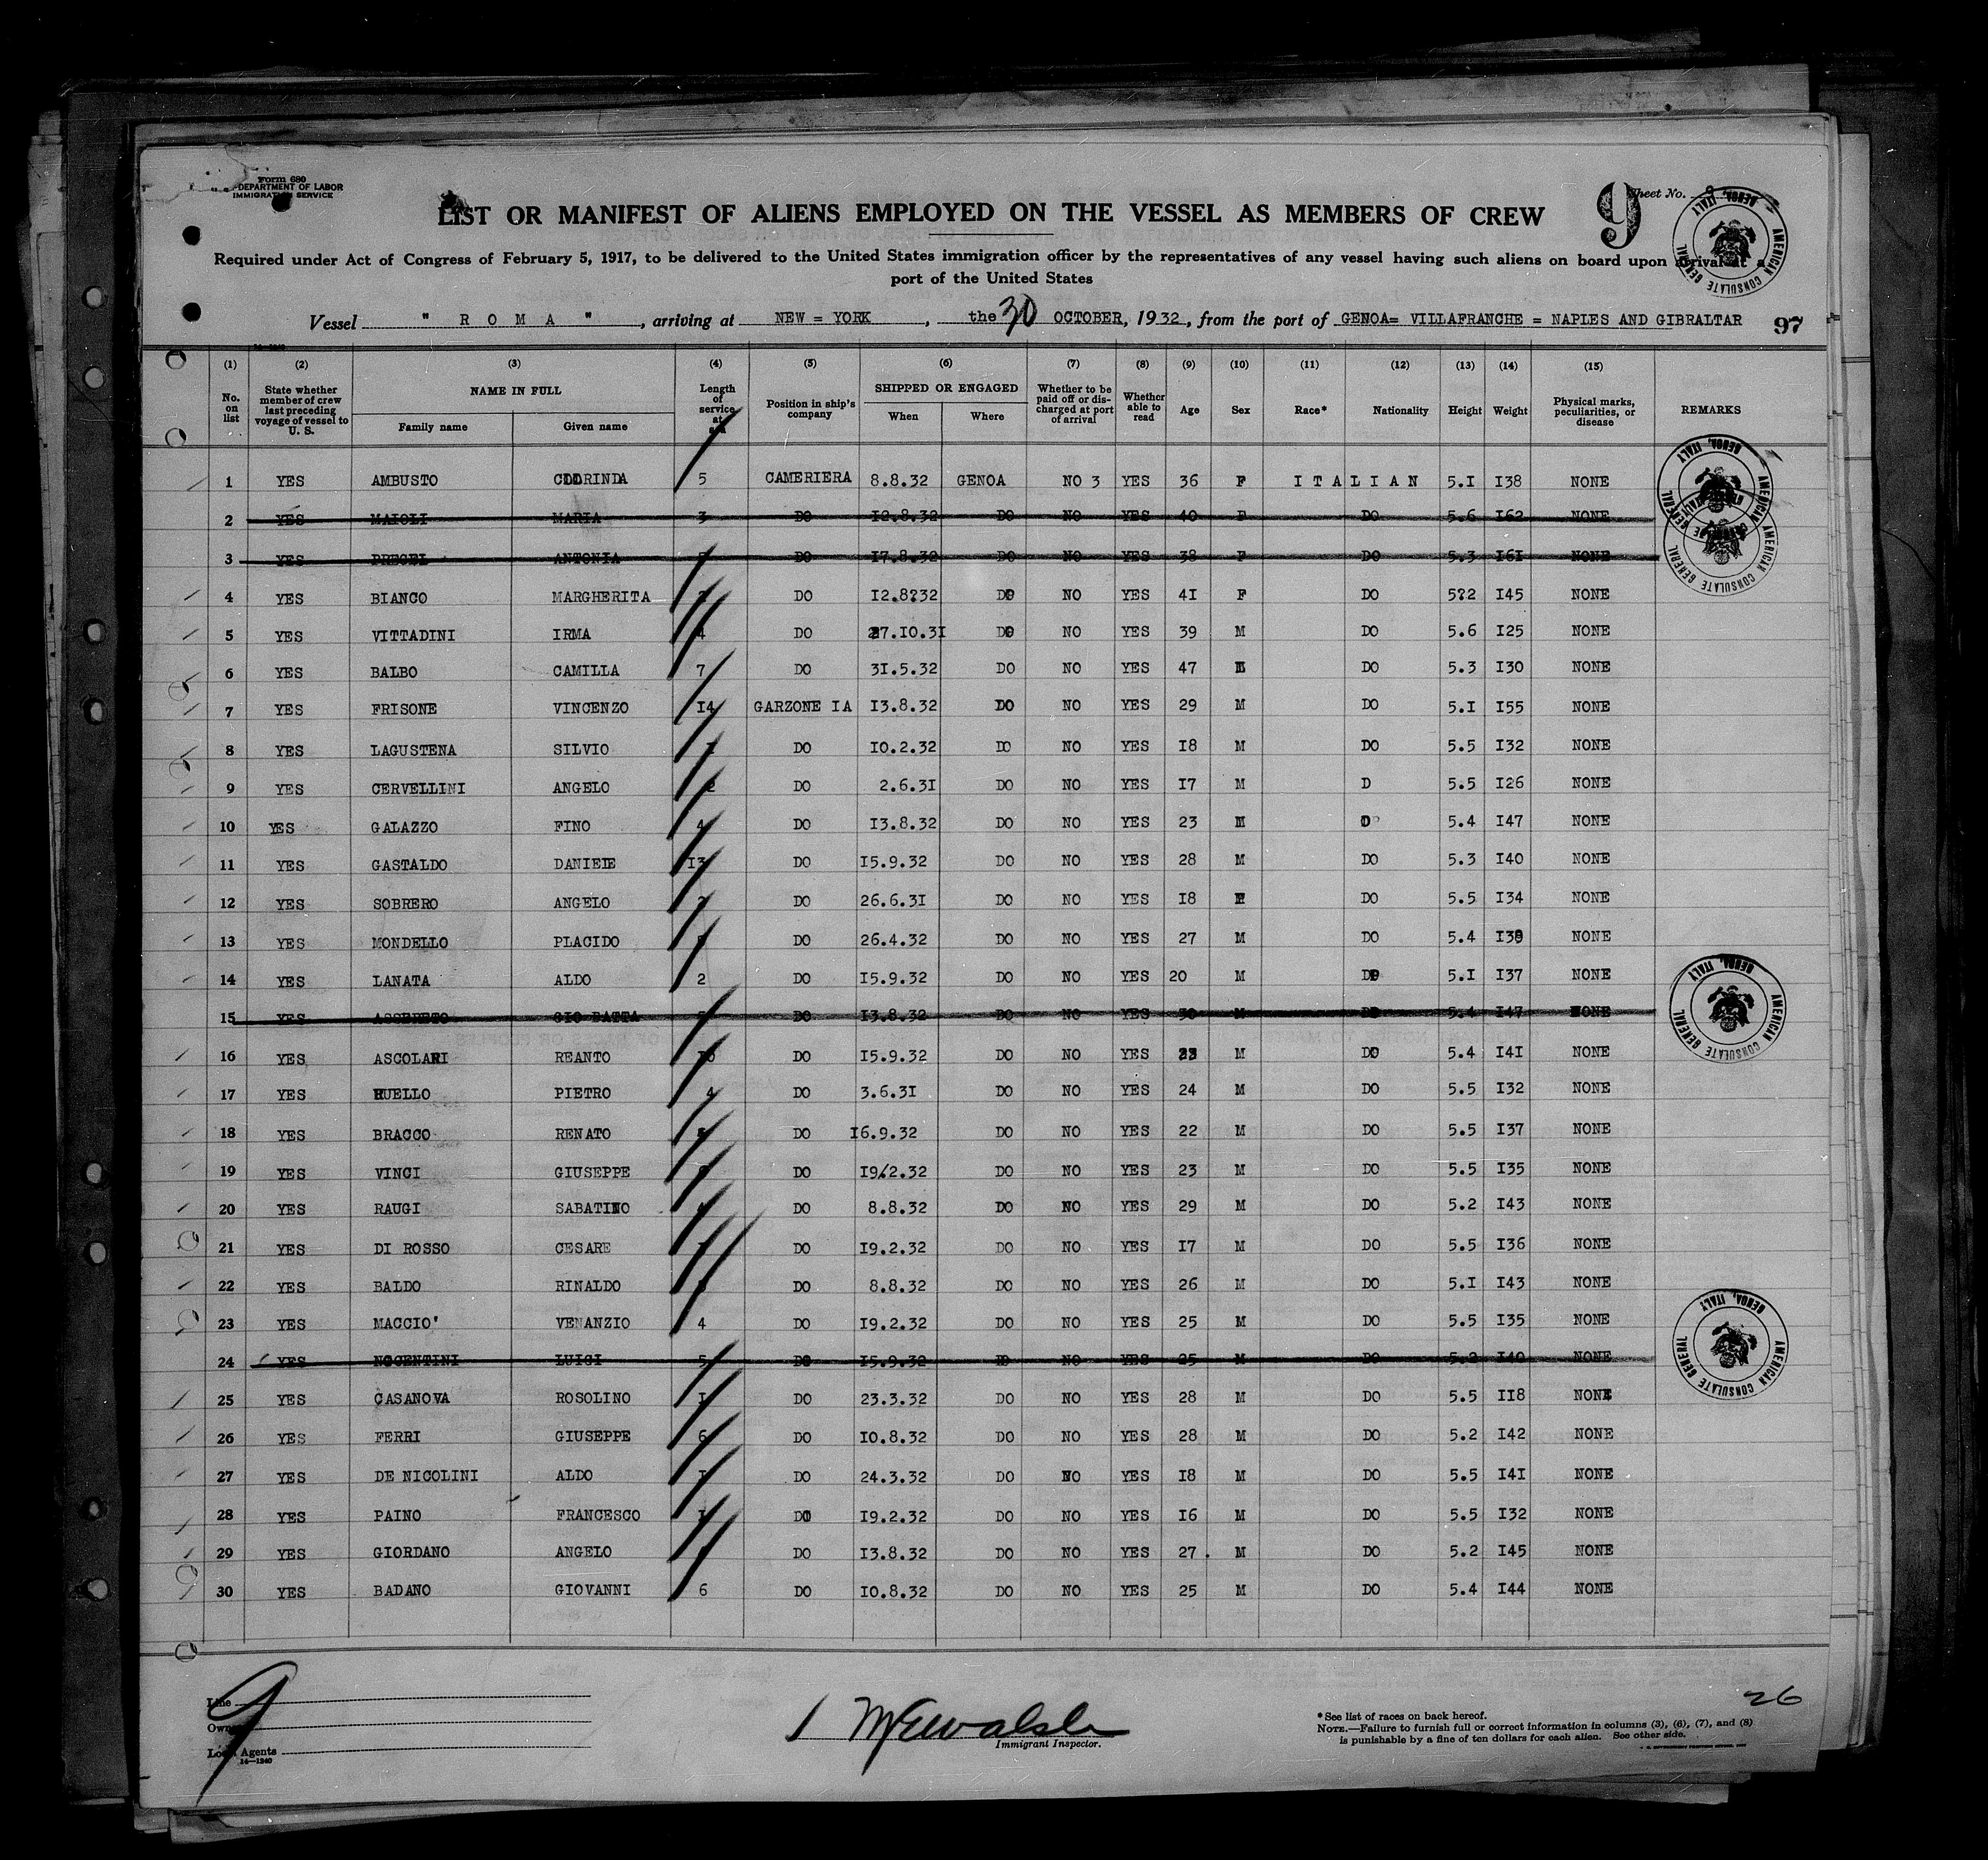 Form 680
DEPARTMENT OF LABOR
IMMIGRATION SERVICE
Sheet No. 9
9
LIST OR MANIFEST OF ALIENS EMPLOYED ON THE VESSEL AS MEMBERS OF CREW
Required under Act of Congress of February 5, 1917, to be delivered to the United States immigration officer by the representatives of any vessel having such aliens on board upon arrival at a
port of the United States
Vessel " R O M A " , arriving at NEW = YORK , the 30 OCTOBER, 1932, from the port of GENOA= VILLAFRANCHE = NAPLES AND GIBRALTAR 97
(1) (2) (3) (4) (5) (6) (7) (8) (9) (10) (11) (12) (13) (14) (15)
No. on list State whether member of crew last preceding voyage of vessel to U. S. NAME IN FULL Family name Given name Length of service at sea Position in ship's company SHIPPED OR ENGAGED When Where Whether to be paid off or discharged at port of arrival Whether able to read Age Sex Race* Nationality Height Weight Physical marks, peculiarities, or disease REMARKS
1 YES AMBUSTO 5 CAMERIERA 8.8.32 GENOA NO 3 YES 36 F I T A L I A N 5.I I38 NONE
2 YES MAIOLI MARIA 3 DO I2.8.32 DO NO YES 40 F DO 5.6 I62 NONE
3 YES ANTONIA DO I7.8.32 DO NO YES 38 F DO 5.3 I6I NONE
4 YES BIANCO MARGHERITA DO I2.8?32 DO NO YES 4I F DO 5?2 I45 NONE
5 YES VITTADINI IRMA 4 DO 27.I0.3I DO NO YES 39 M DO 5.6 I25 NONE
6 YES BALBO CAMILLA 7 DO 3I.5.32 DO NO YES 47 DO 5.3 I30 NONE
7 YES FRISONE VINCENZO I4 GARZONE IA I3.8.32 DO NO YES 29 M DO 5.I I55 NONE
8 YES LAGUSTENA SILVIO DO I0.2.32 DO NO YES I8 M DO 5.5 I32 NONE
9 YES CERVELLINI ANGELO 2 DO 2.6.3I DO NO YES I7 M D 5.5 I26 NONE
10 YES GALAZZO FINO 4 DO I3.8.32 DO NO YES 23 M 5.4 I47 NONE
11 YES GASTALDO DANIELE I3 DO I5.9.32 DO NO YES 28 M DO 5.3 I40 NONE
12 YES SOBRERO ANGELO DO 26.6.3I DO NO YES I8 DO 5.5 I34 NONE
13 YES MONDELLO PLACIDO DO 26.4.32 DO NO YES 27 M DO 5.4 NONE
14 YES LANATA ALDO 2 DO I5.9.32 DO NO YES 20 M DO 5.I I37 NONE
15 YES ASSERETO GIO BATTA DO I3.8.32 DO NO YES 30 M DO 5.4 I47 NONE
16 YES ASCOLARI REANTO DO I5.9.32 DO NO YES M DO 5.4 I4I NONE
17 YES PIETRO 4 DO 3.6.3I DO NO YES 24 M DO 5.5 I32 NONE
18 YES BRACCO RENATO DO I6.9.32 DO NO YES 22 M DO 5.5 I37 NONE
19 YES VINCI GIUSEPPE DO I9/2.32 DO NO YES 23 M DO 5.5 I35 NONE
20 YES RAUGI SABATINO DO 8.8.32 DO NO YES 29 M DO 5.2 I43 NONE
21 YES DI ROSSO CESARE DO I9.2.32 DO NO YES I7 M DO 5.5 I36 NONE
22 YES BALDO RINALDO DO 8.8.32 DO NO YES 26 M DO 5.I I43 NONE
23 YES MACCIO' VENANZIO 4 DO I9.2.32 DO NO YES 25 M DO 5.5 I35 NONE
24 YES NOCENTINI LUIGI 5 DO I5.9.32 DO NO YES 25 M DO 5.2 I40 NONE
25 YES CASANOVA ROSOLINO I DO 23.3.32 DO NO YES 28 M DO 5.5 II8 NONE
26 YES FERRI GIUSEPPE 6 DO I0.8.32 DO NO YES 28 M DO 5.2 I42 NONE
27 YES DE NICOLINI ALDO I DO 24.3.32 DO NO YES I8 M DO 5.5 I4I NONE
28 YES PAINO FRANCESCO I DO I9.2.32 DO NO YES I6 M DO 5.5 I32 NONE
29 YES GIORDANO ANGELO DO I3.8.32 DO NO YES 27 . M DO 5.2 I45 NONE
30 YES BADANO GIOVANNI 6 DO I0.8.32 DO NO YES 25 M DO 5.4 I44 NONE
AMERICAN CONSULATE GENERAL GENOA, ITALY
AMERICAN CONSULATE GENERAL GENOA, ITALY
AMERICAN CONSULATE GENERAL GENOA, ITALY
AMERICAN CONSULATE GENERAL GENOA, ITALY
AMERICAN CONSULATE GENERAL GENOA, ITALY
Line
Owner
Local Agents
14—1240
9
Immigrant Inspector.
26
*See list of races on back hereof.
NOTE.—Failure to furnish full or correct information in columns (3), (6), (7), and (8)
is punishable by a fine of ten dollars for each alien. See other side.